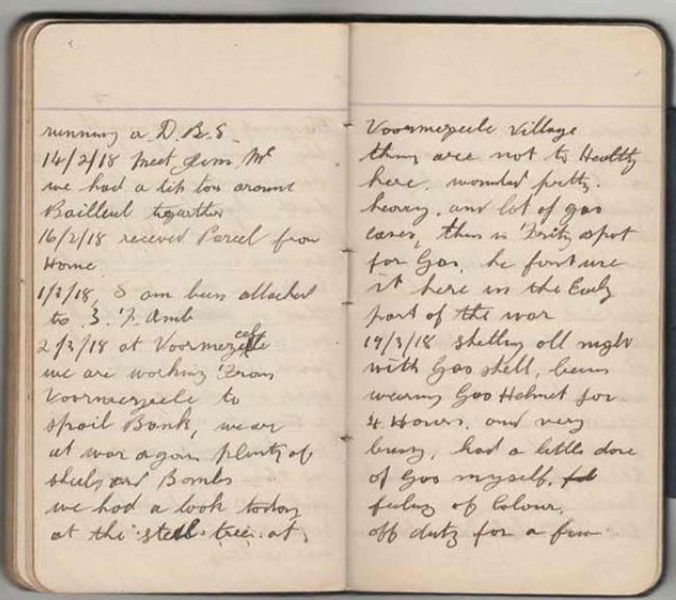 running a D.B.S.
14/2/18 Meet Jim Mc
we had a tip top around
Bailleul together
16/2/18 receved Parcel from
Home
1/3/18, I am been attached
to 3. F. Amb
2/3/18 at Voormezeele
we are working From
Voormezeele to
Spoil Bank, we are
at war again plenty of
shells and Bombs
we had a look today
at the steel tree at
Voormezeele Village
thing are not to Healthy
here, wounded pretty
heavy, and lot of gas
cases, this is Fritz spot
for Gas, he first use
it here in the Early
part of the war
17/3/18 Shelling all night
with Gas shell, been
wearing Gas Helmet for
4 Hours, and very
busy, had a little dose
of Gas myself,
feeling of Colour,
off duty for a few